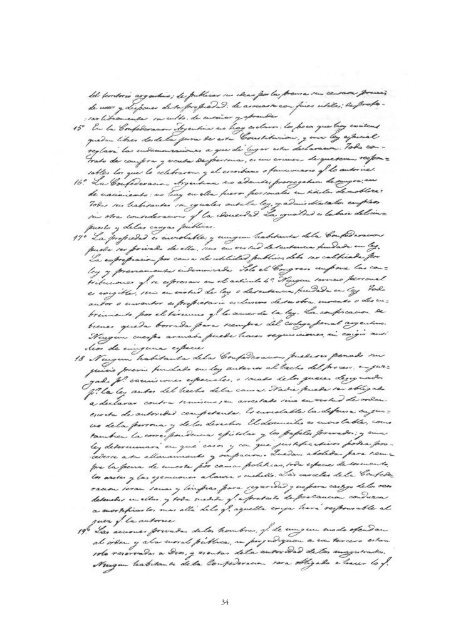 del territorio argentino; de publicar sus ideas por la prensa sin censura previa;
de usar y disponer de su propiedad; de asociarse con fines utiles; de profe-
sar libremente su culto; de enseñar y aprender.
15º En la Confederacion Argentina no hay esclavos: los pocos que hoy existen
quedan libres desde la jura de esta Constitucion; y una ley especial
reglará las indemnizaciones a que dé lugar esta declaracion. Todo con-
trato de compra y venta de personas, es un crimen de que seran respon-
sables los que lo celebrasen y el escribano o funcionario qe lo autorice.
16º La Confederacion Argentina no admite prerrogativas de sangre, ni
de nacimiento: no hay en ella fueros personales ni titulos de nobleza.
Todos sus habitantes son iguales ante la ley, y admisibles en los empleos
sin otra consideracion que la idoneidad. La igualdad es la base del im-
puesto y de las cargas publicas.
17º La propiedad es inviolable, y ningun habitante de la Confederacion
puede ser privado de ella, sino en virtud de sentencia fundada en ley.
La expropiacion por causa de utilidad publica, debe ser calificada por
ley y previamente indemnizada. Solo el Congreso impone las con-
tribuciones qe se espresan en el articulo 4º. Ningun servicio personal
es exigible, sino en virtud de ley o de sentencia fundada en ley. Todo
autor o inventor es propietario esclusivo de su obra, invento o descu-
brimiento por el término qe le acuerde la ley. La confiscacion de
bienes queda borrada para siempre del codigo penal argentino.
Ningun cuerpo armado puede hacer requisiciones, ni exigir ausi-
lios de ninguna especie.
18 Ningun habitante de la Confederacion puede ser penado sin
juicio previo fundado en ley anterior al hecho del proceso, ni juz-
gado pr comisiones especiales, o sacado de los jueces designados
pr la ley antes del hecho de la causa. Nadie puede ser obligado
a declarar contra si mismo; ni arrestado sino en virtud de orden
escrita de autoridad competente. Es inviolable la defensa en jui-
cio de la persona y de los derechos. El domicilio es inviolable, como
tambien la correspondencia epistolar y los papeles privados; y una
ley determinará en qué casos y con qué justificativos podrá pro-
cederse a su allanamiento y ocupacion. Quedan abolidos para siem-
pre la pena de muerte por causas politicas, toda especie de tormento,
los azotes y las ejecuciones a lanza o cuchillo. Las carceles de la Confede-
racion seran sanas y limpias, para seguridad y no para castigo de los reos
detenidos en ellas, y toda medida qe a pretesto de precaucion conduzca
a mortificarlos mas allá de lo qe aquella exija, hará responsable al
juez qe la autorice.
19º Las acciones privadas de los hombres, qe de ningun modo ofendan
al órden y a la moral publica, ni perjudiquen a un tercero, estan
solo reservadas a Dios, y exentas de la autoridad de los magistrados.
Ningun habitante de la Confederacion será obligado a hacer lo qe
34